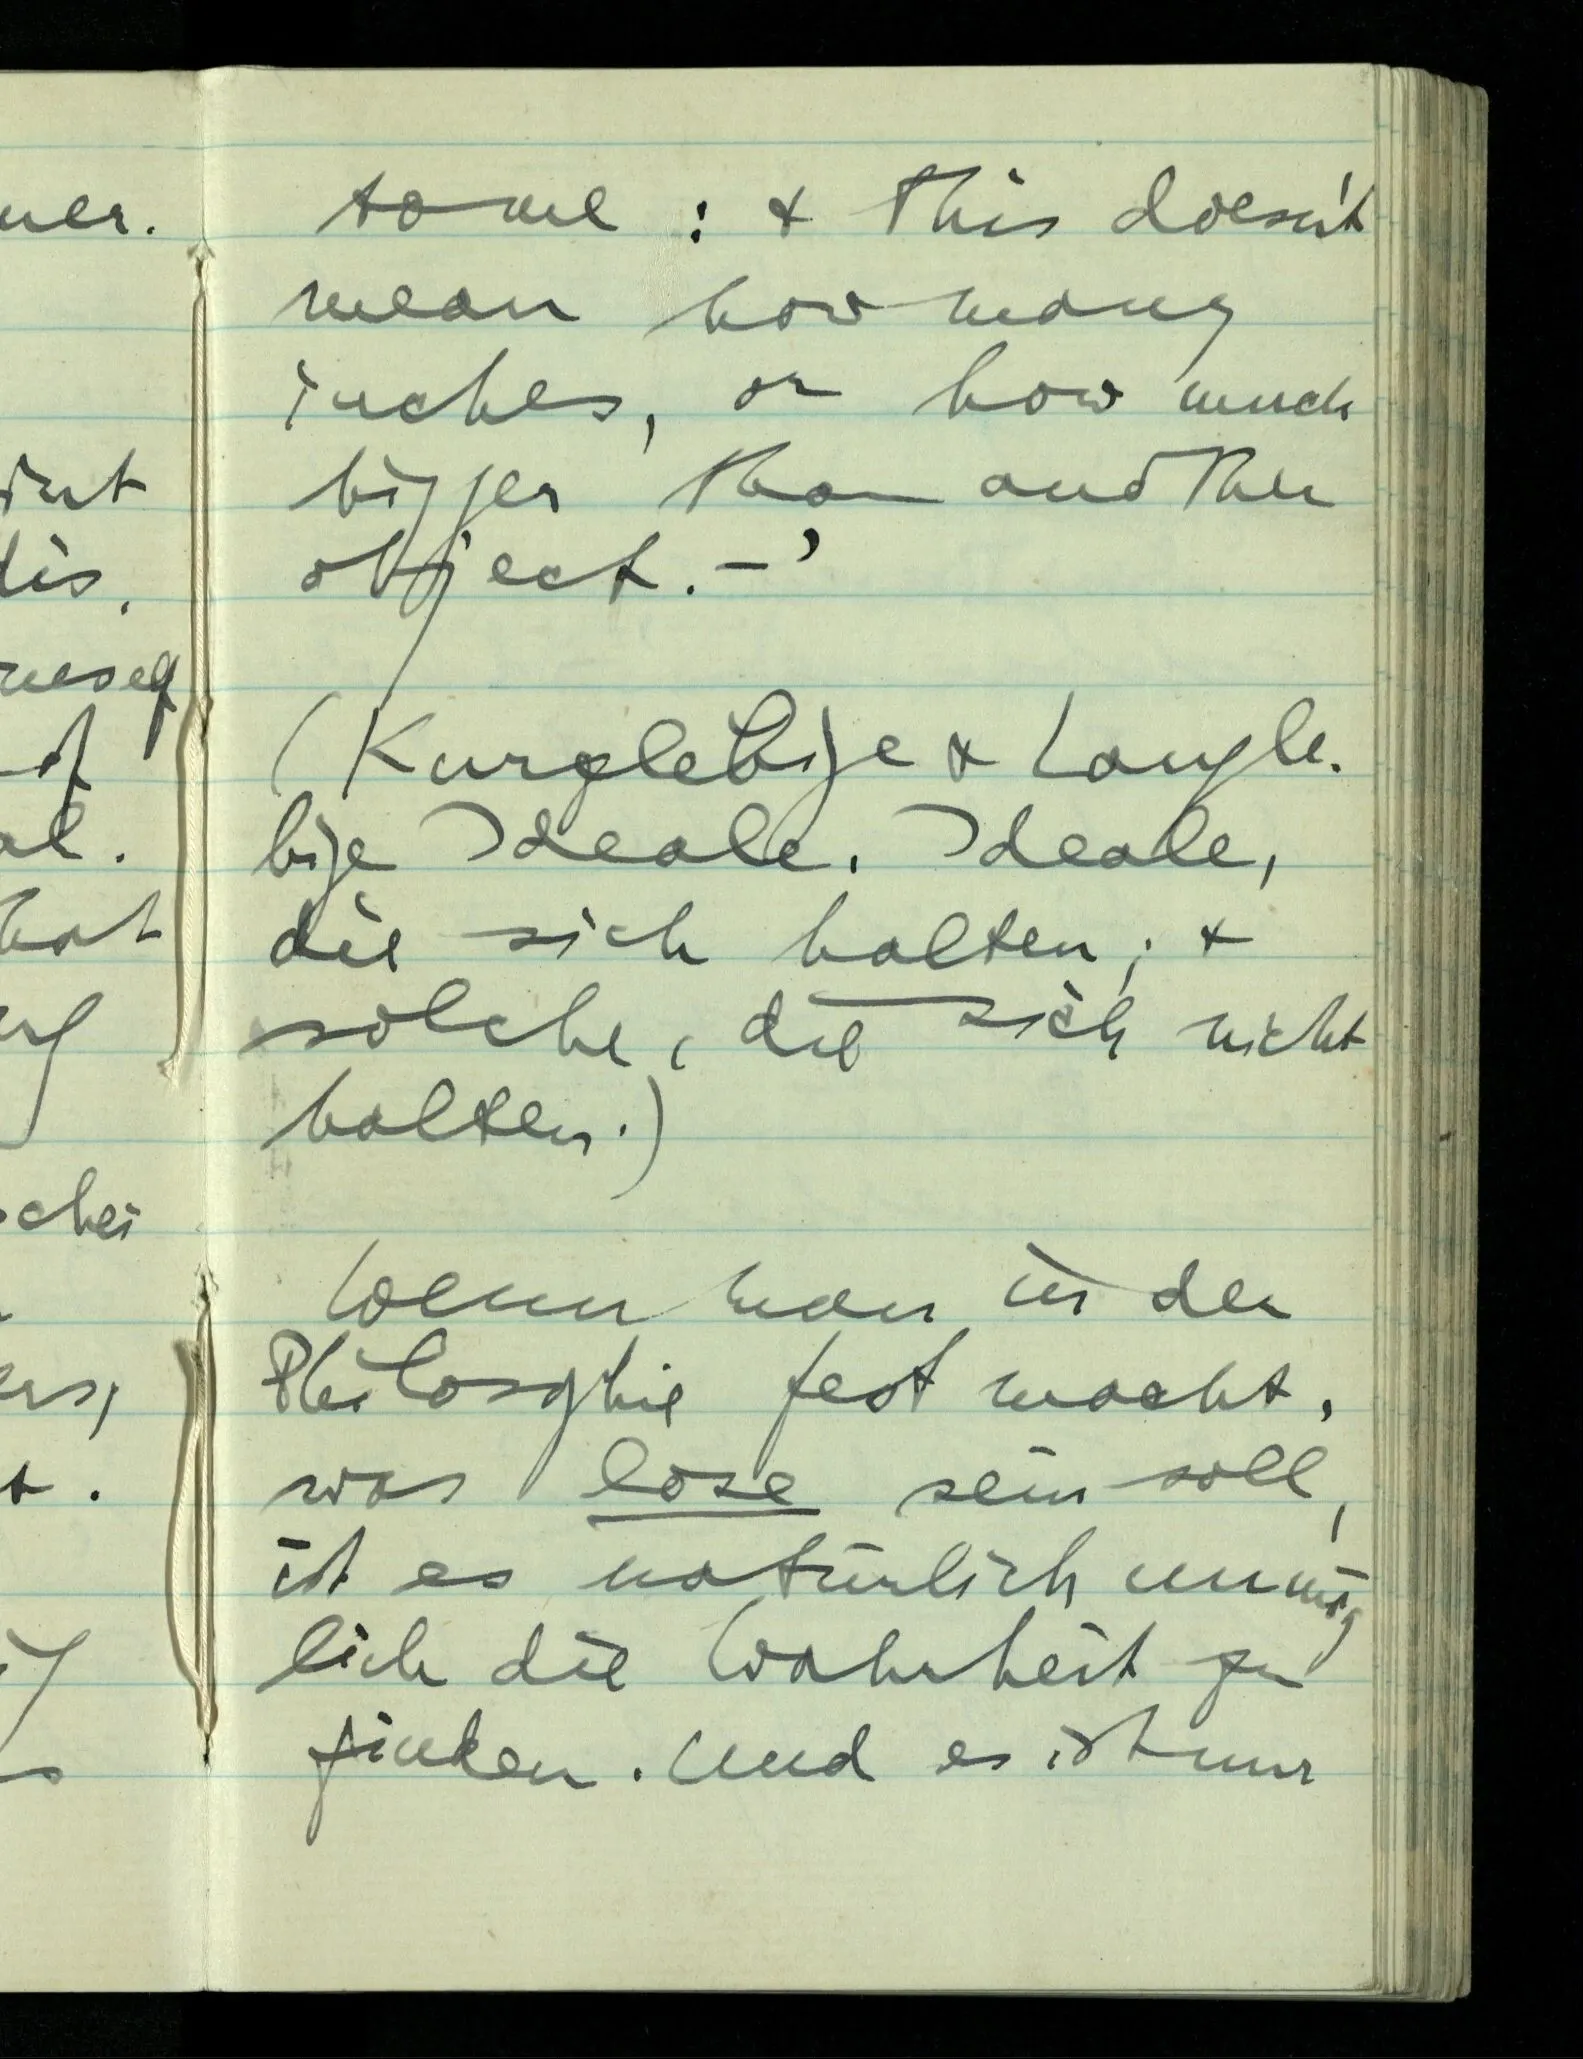 ner.
dis.
of
al.
hat
t.
some : & this doesn't
mean how many
inches, or how much
bigger than another
object. –'
(Kurzlebige & Langle-
bige Ideale. Ideale,
die sich halten; &
solche, die sich nicht
halten.)
Wenn man in der
Philosophie fest macht,
was lose sein soll,
ist es natürlich unmög
lich die Wahrheit zu
finden. Und es ist nur